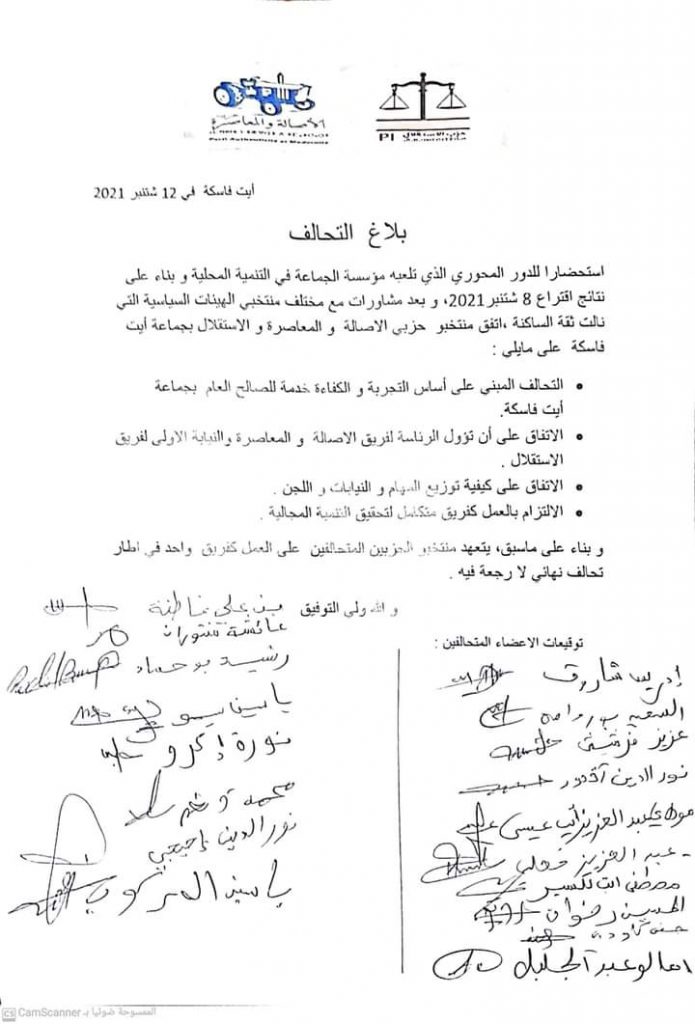 الأصالة والمعاصرة
PI
أيت فاسكة في 12 شتنبر 2021
بلاغ التحالف
استحضارا للدور المحوري الذي تلعبه مؤسسة الجماعة في التنمية المحلية و بناء على
نتائج اقتراع 8 شتنبر2021، و بعد مشاورات مع مختلف منتخبي الهيئات السياسية التي
نالت ثقة الساكنة ،اتفق منتخبو حزبي الاصالة و المعاصرة و الاستقلال بجماعة أيت
فاسكة على مايلي :
• التحالف المبني على أساس التجربة و الكفاءة خدمة للصالح العام بجماعة
أيت فاسكة.
• الاتفاق على أن تؤول الرئاسة لفريق الاصالة و المعاصرة والنيابة الاولى لفريق
الاستقلال .
• الاتفاق على كيفية توزيع المهام و النيابات و اللجن .
• الالتزام بالعمل كفريق متكامل لتحقيق التنمية المجالية .
و بناء على ماسبق، يتعهد منتخبو الحزبين المتحالفين على العمل كفريق واحد في اطار
تحالف نهائي لا رجعة فيه .
و الله ولي التوفيق
توقيعات الاعضاء المتحالفين :
إدريس شارق
السعيد
عزيز
نور الدين
عبد العزيز أيت عيسى
عبد العزيز
مصطفى ايت لكسير
الحسين رضوان
حسن
عبد الجليل
بن علي فاطنة
عائشة
رشيد بوحماد
ياسين
نورة إكرو
محمد
نور الدين
ياسين
الممسوحة ضوئيا بـ CamScanner
CS